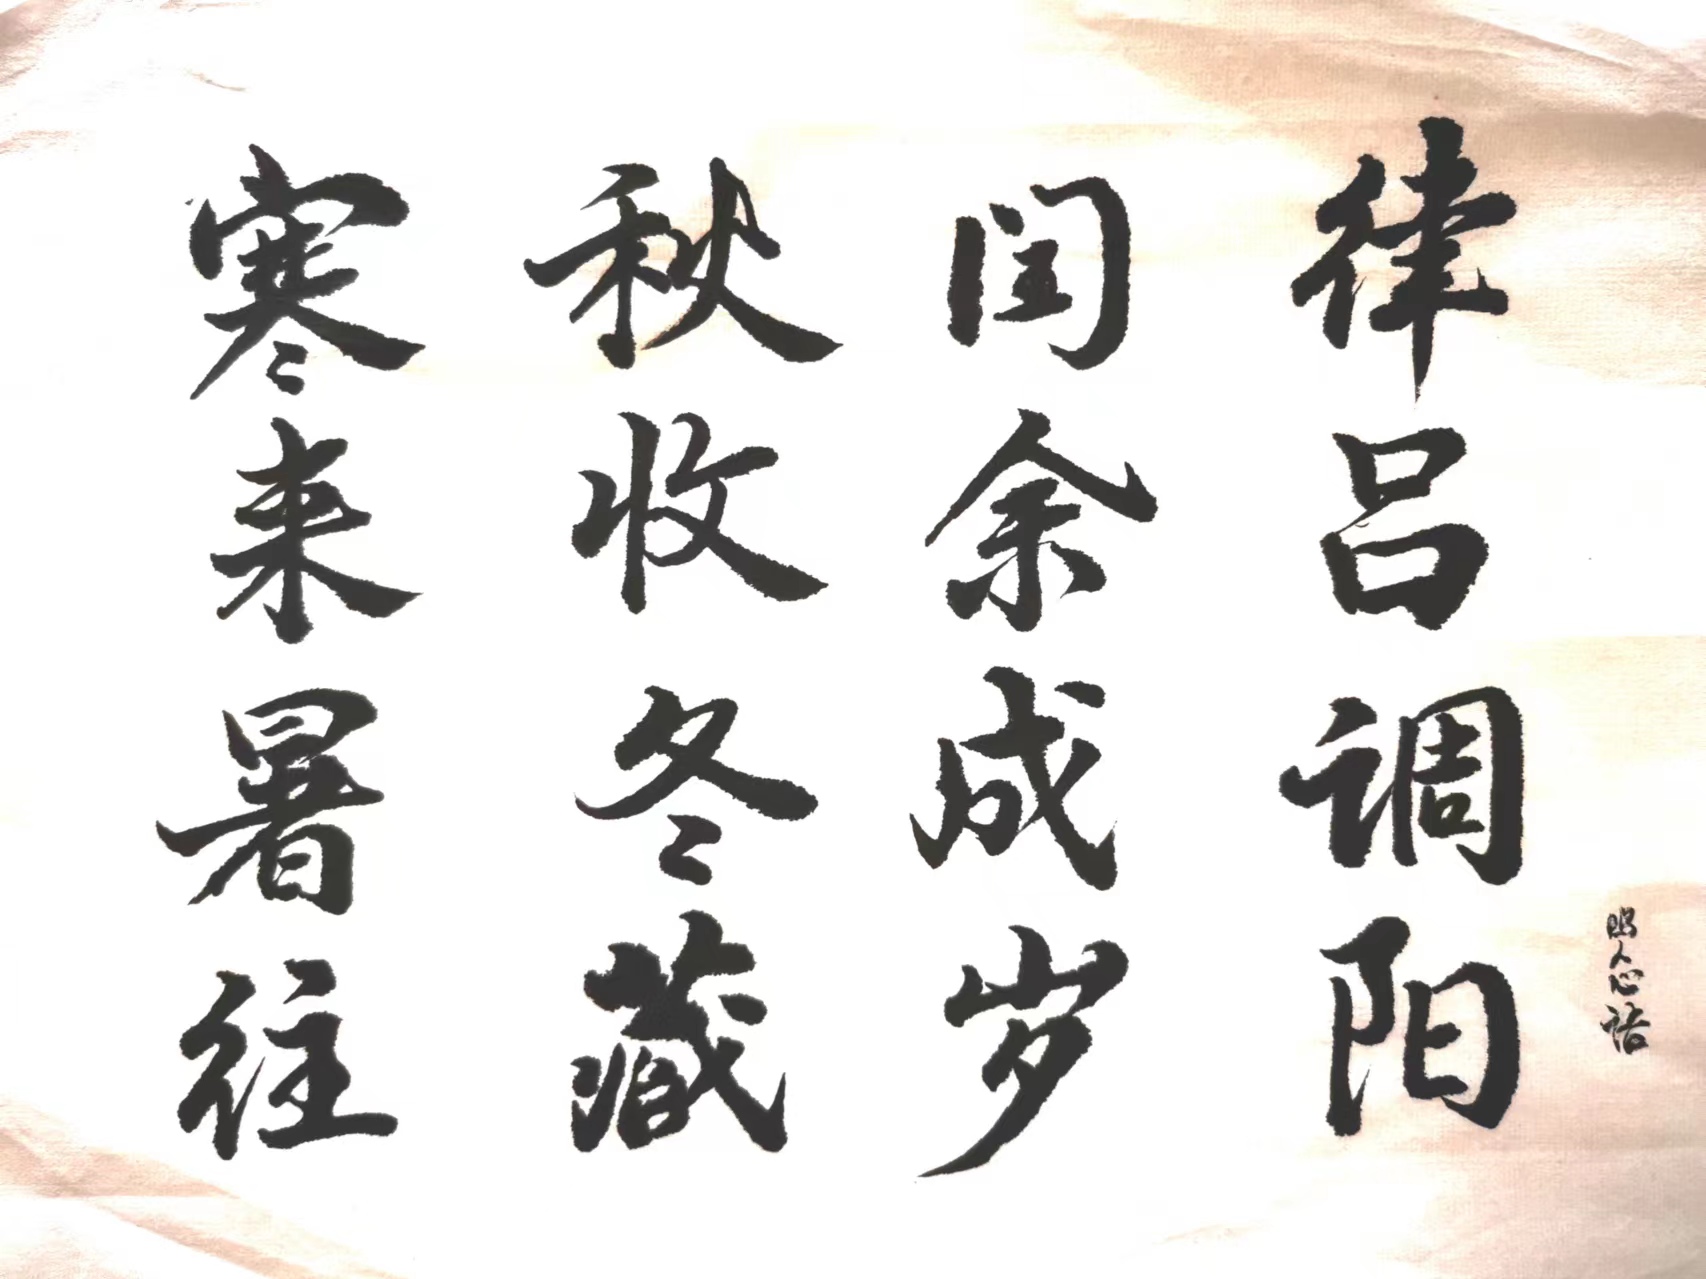 寒来暑往
秋收冬藏
闰余成岁
律吕调阳
人心